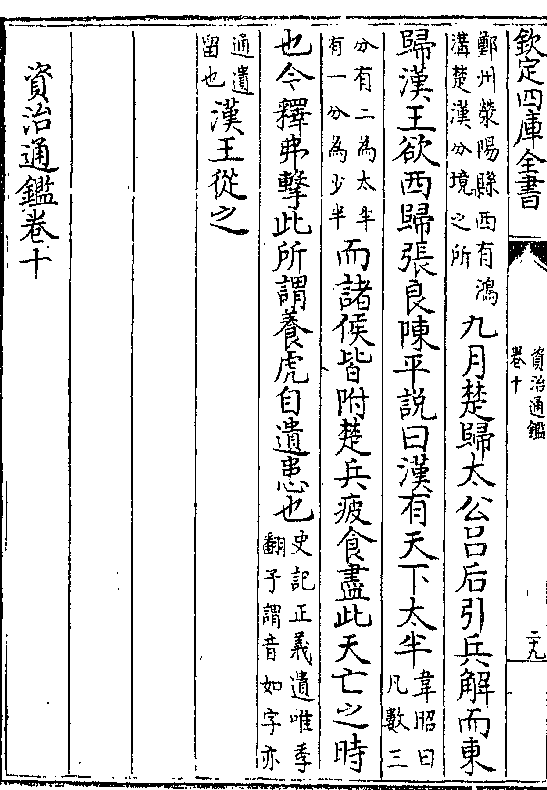 欽定四庫全書
資治通鑑
卷十
鄭州滎陽縣西有鴻
溝楚漢分境之所
九月楚歸太公呂后引兵解而東
歸漢王欲西歸張良陳平說曰漢有天下太半
韋昭曰
凡數三
分有二為太半
有一分為少半
而諸侯皆附楚兵疲食盡此天亡之時
也今釋弗擊此所謂養虎自遺患也
史記正義遺唯季
翻予謂音如字亦
通遺
留也
漢王從之
資治通鑑卷十